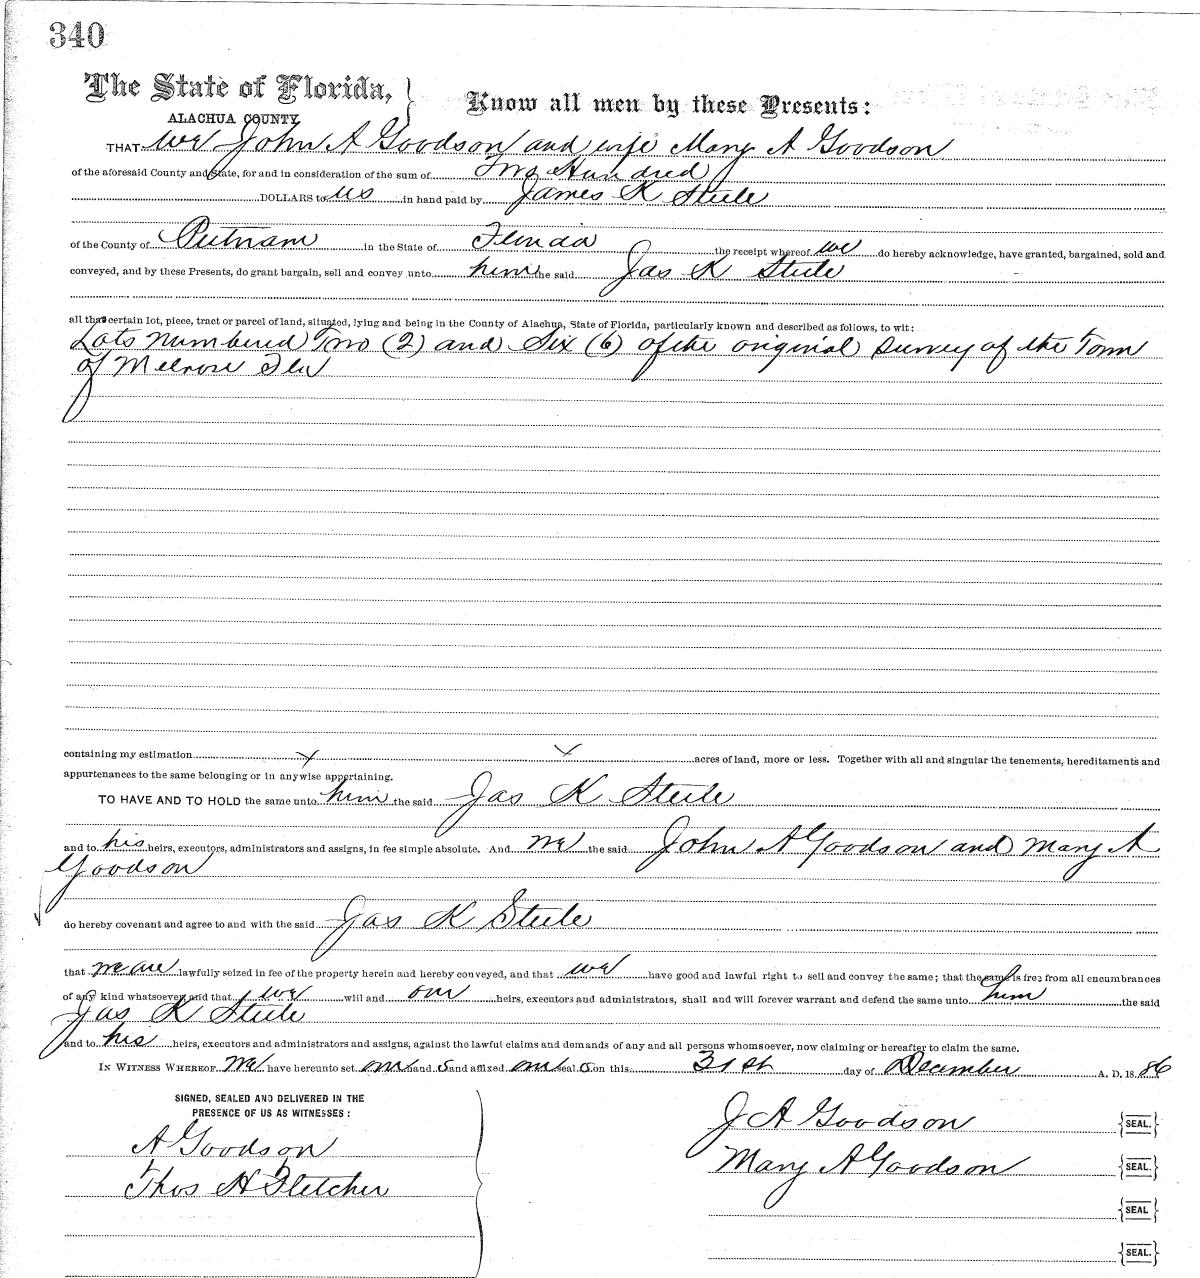 340
The State of Florida, } Know all men by these Presents:
ALACHUA COUNTY
THAT we John A Goodson and wife Mary A Goodson
of the aforesaid County and State, for and in consideration of the sum of Two Hundred
DOLLARS to us in hand paid by James K Steele
of the County of Putnam in the State of Florida the receipt whereof we do hereby acknowledge, have granted, bargained, sold and
conveyed, and by these Presents, do grant bargain, sell and convey unto him the said Jas K Steele
all that certain lot, piece, tract or parcel of land, situated, lying and being in the County of Alachua, State of Florida, particularly known and described as follows, to wit:
Lots numbered Two (2) and Six (6) of the original survey of the Town
of Melrose Fla
containing my estimation x x acres of land, more or less. Together with all and singular the tenements, hereditaments and
appurtenances to the same belonging or in anywise appertaining.
TO HAVE AND TO HOLD the same unto him the said Jas K Steele
and to his heirs, executors, administrators and assigns, in fee simple absolute. And we the said John A Goodson and Mary A
Goodson
do hereby covenant and agree to and with the said Jas K Steele
that we are lawfully seized in fee of the property herein and hereby conveyed, and that we have good and lawful right to sell and convey the same; that the same is free from all encumbrances
of any kind whatsoever, and that we will and our heirs, executors and administrators, shall and will forever warrant and defend the same unto him the said
Jas K Steele
and to his heirs, executors and administrators and assigns, against the lawful claims and demands of any and all persons whomsoever, now claiming or hereafter to claim the same.
IN WITNESS WHEREOF we have hereunto set our hand s and affixed our seal s on this 31st day of December A. D. 18 86
SIGNED, SEALED AND DELIVERED IN THE
PRESENCE OF US AS WITNESSES:
A Goodson
Thos H Fletcher
J A Goodson {SEAL.}
Mary A Goodson {SEAL.}
{SEAL}
{SEAL.}